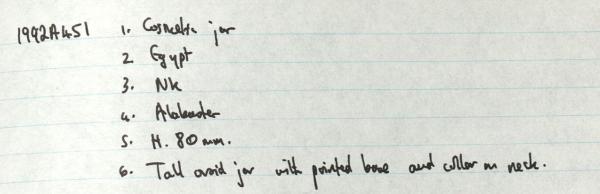 1992A451 1. Cosmetic jar
2 Egypt
3. NK
4. Alabaster
5. H. 80 mm.
6. Tall ovoid jar with pointed base and collar on neck.